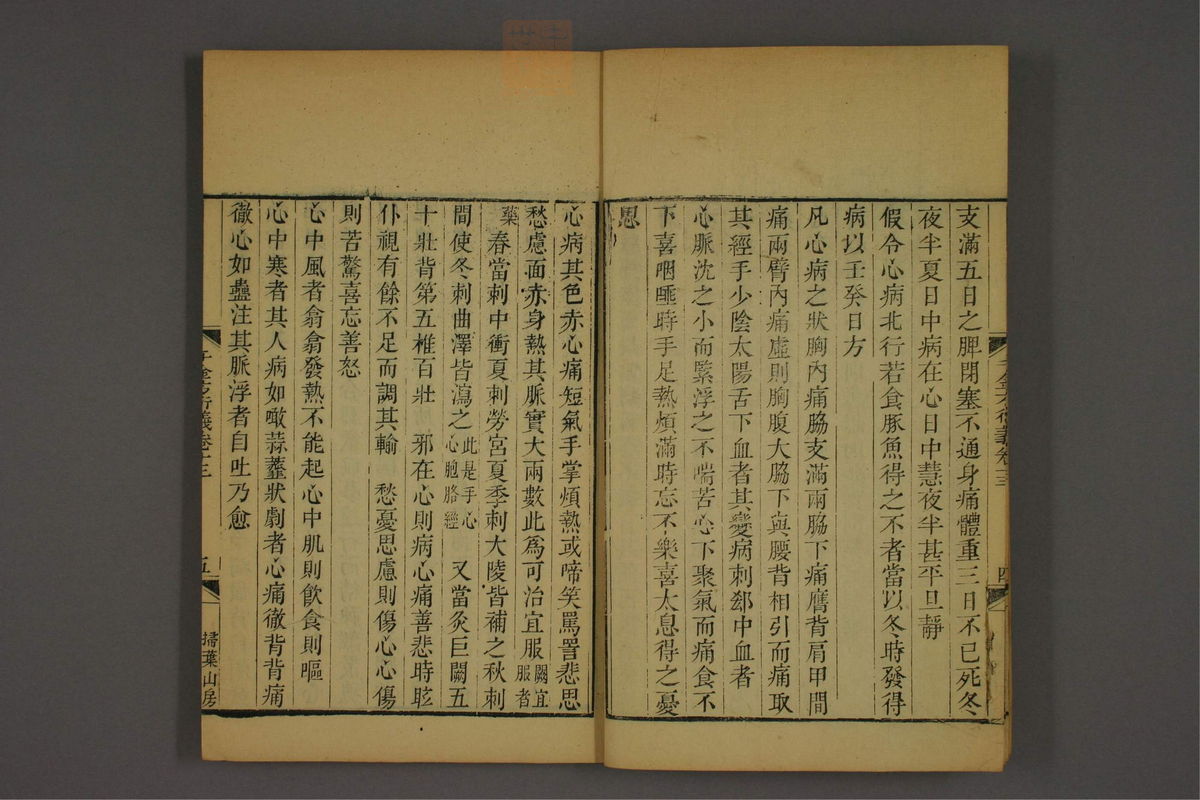 支滿五日之脾閉塞不通身痛體重三日不已死冬
夜半夏日中病在心日中慧夜半甚平旦靜
假令心病北行若食豚魚得之不者當以冬時發得
病以壬癸日方
凡心病之狀胸內痛脇支滿兩脇下痛膺背肩甲間
痛兩臂內痛虛則胸腹大脇下與腰背相引而痛取
其經手少陰太陽舌下血者其變病刺郄中血者
心脈沈之小而緊浮之不喘苦心下聚氣而痛食不
下喜咽唾時手足熱煩滿時忘不樂喜太息得之憂
思
千金方衍義卷十三
四
心病其色赤心痛短氣手掌煩熱或啼笑罵詈悲思
愁慮面赤身熱其脈實大而數此為可治宜服闕宜服者
藥 春當刺中衝夏刺勞宮夏季刺大陵皆補之秋刺
間使冬刺曲澤皆瀉之此是手心心胞胳經 又當灸巨闕五
十壯背第五椎百壯 邪在心則病心痛善悲時眩
仆視有餘不足而調其輸 愁憂思慮則傷心心傷
則苦驚喜忘善怒
心中風者翕翕發熱不能起心中肌則飲食則嘔
心中寒者其人病如噉蒜虀狀劇者心痛徹背背痛
徹心如蠱注其脈浮者自吐乃愈
千金方衍義卷十三
五
掃葉山房